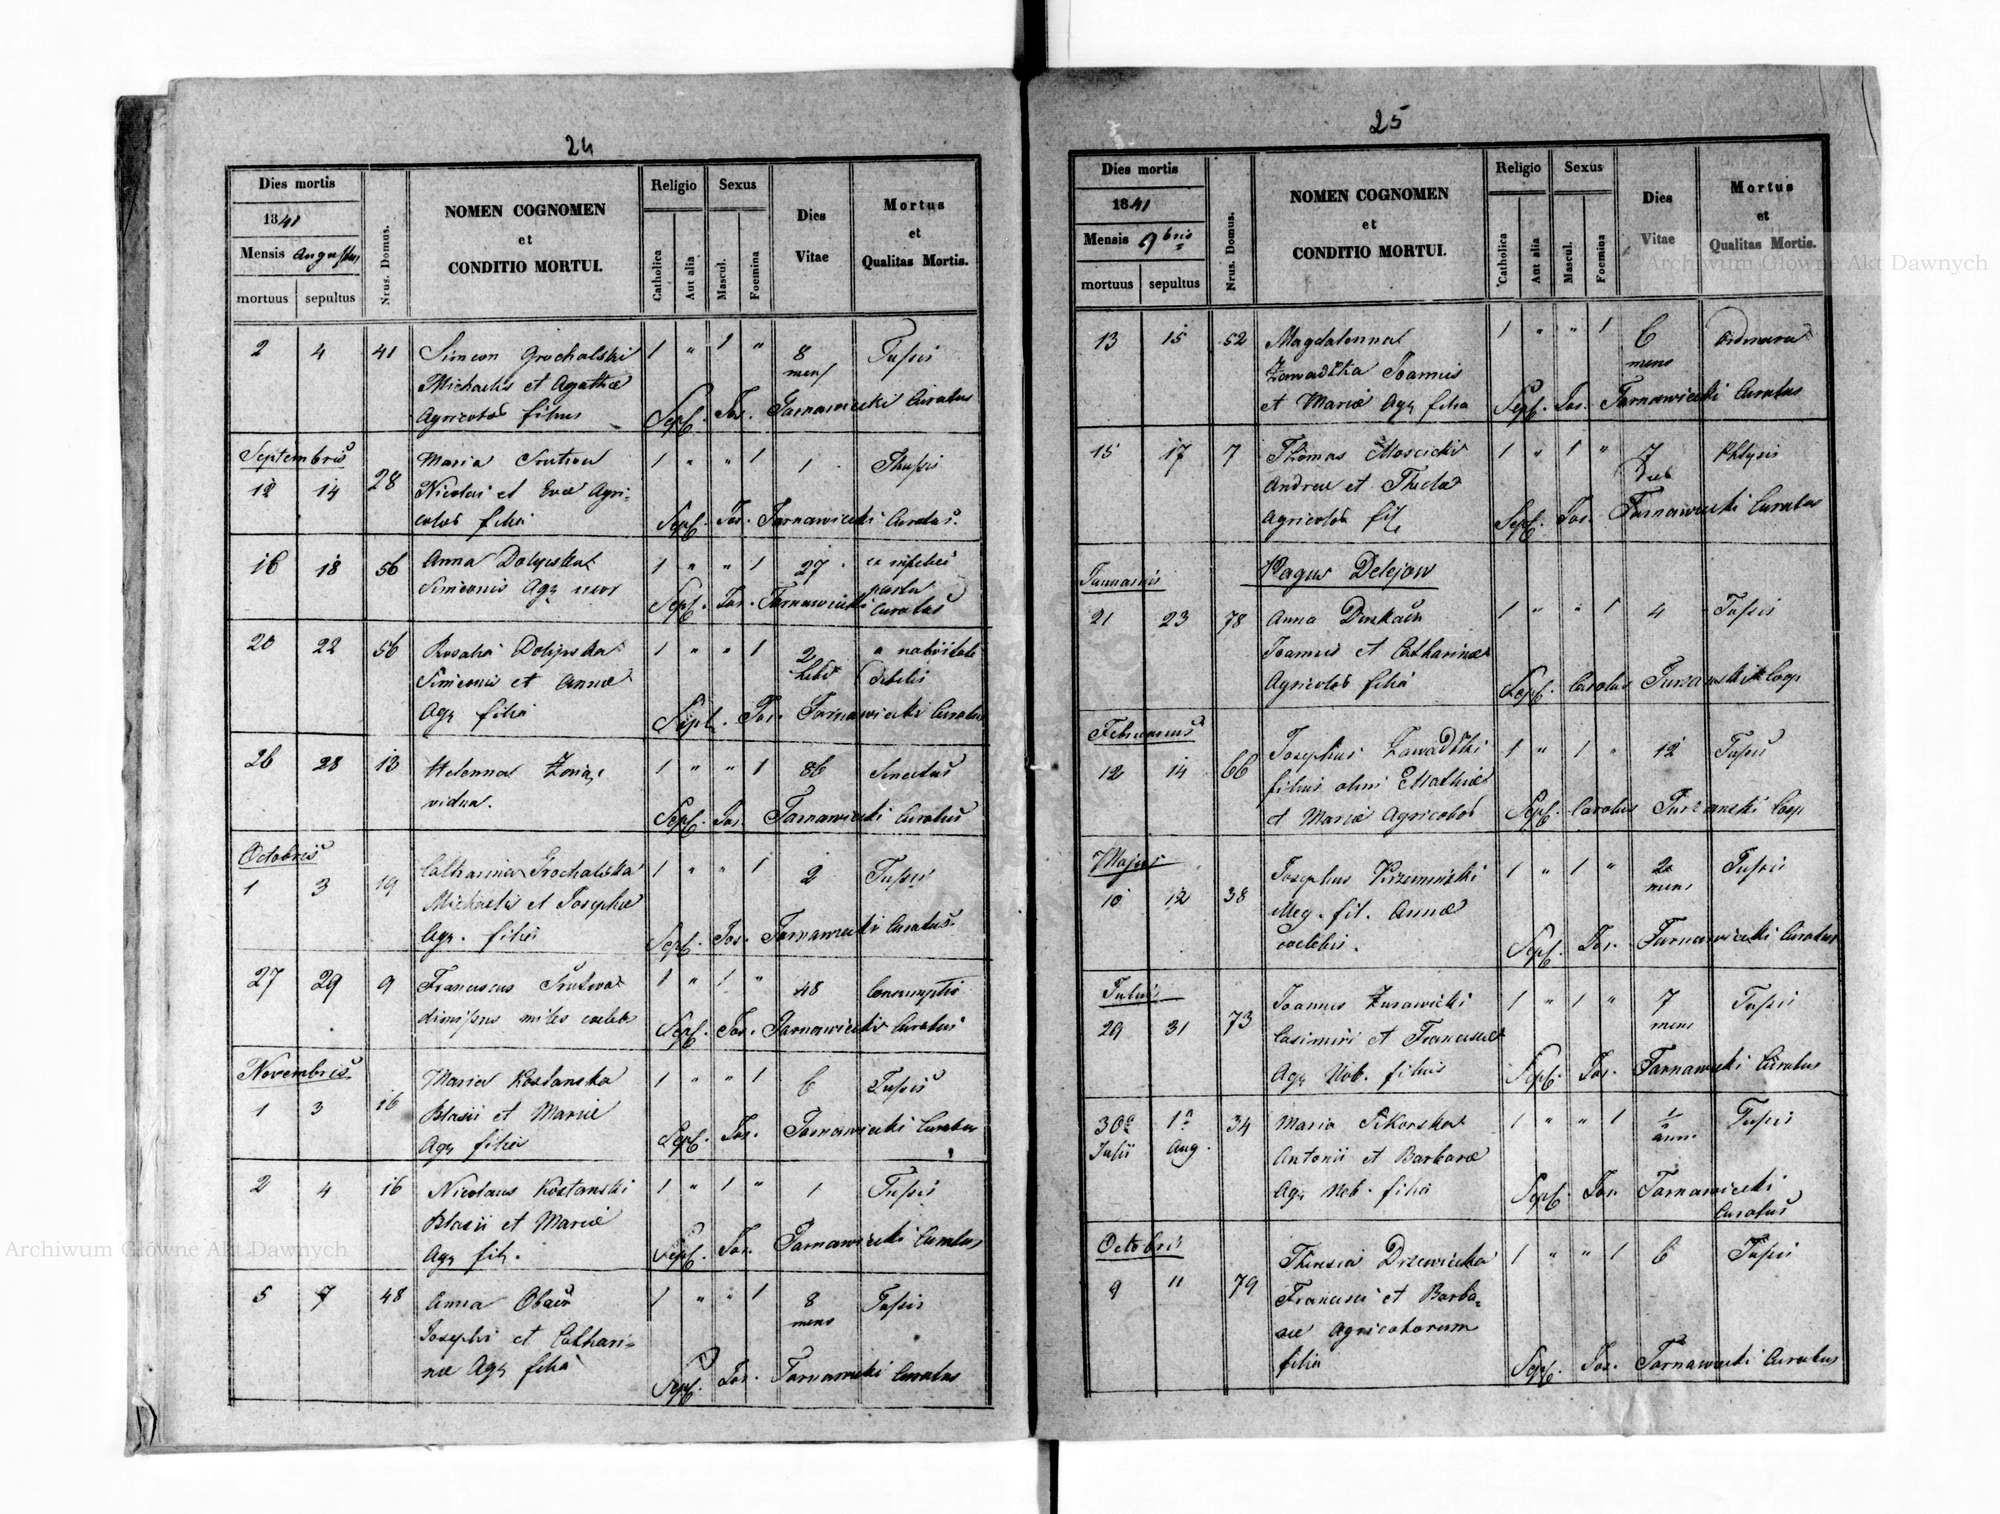 24
Dies mortis
1841
Mensis Augustus
mortuus sepultus
Nrus. Domus.
NOMEN COGNOMEN
et
CONDITIO MORTUI.
Religio
Catholica
Aut alia
Sexus
Mascul.
Foemina
Dies
Vitae
Mortus
et
Qualitas Mortis.
2 4 41 Simeon Grochalski 1 " 1 " 8 Tussis
Michaelis et Agathae mens
Agricolar filius Sepl. Jos. Tarnawiecki Curatus
Septembris Maria 1 " " 1 1
12 14 28 Nicolai et Evae Agri-
colar filia Sepl. Jos. Tarnawiecki Curatus.
16 18 56 Anna 1 " " 1 27 ex infelici
Simeonis Agr uxor partu
Sepl. Jos. Tarnawiecki Curatus
20 22 56 Rosalia 1 " " 1 2 a nativitate
Simeonis et Annae debilis
Agr filia Sepl. Jos. Tarnawiecki Curatus
26 28 13 Helenna 1 " " 1 86 Senectus
vidua. Sepl. Jos. Tarnawiecki Curatus
Octobris
1 3 19 Catharina Grochalska 1 " " 1 2 Tussis
Michaelis et Josephae
Agr. filia Sepl. Jos. Tarnawiecki Curatus
27 29 9 Franciscus 1 " 1 " 48
dimissus miles caelebs Sepl. Jos. Tarnawiecki Curatus
Novembris Maria Kostanska 1 " " 1 6 Tussis
1 3 16 Blasii et Mariae
Agr filia Sepl. Jos. Tarnawiecki Curatus
2 4 16 Nicolaus Kostanski 1 " 1 " 1 Tussis
Blasii et Mariae
Agr fil. Sepl. Jos. Tarnawiecki Curatus
5 7 48 Anna 1 " " 1 8 Tussis
Josephi et Cathari- mens
nae Agr filia Sepl. Jos. Tarnawiecki Curatus
25
Dies mortis
1841
Mensis 9bris
mortuus sepultus
Nrus. Domus.
NOMEN COGNOMEN
et
CONDITIO MORTUI.
Religio
Catholica
Aut alia
Sexus
Mascul.
Foemina
Dies
Vitae
Mortus
et
Qualitas Mortis.
13 15 52 Magdalenna 1 " " 1 6
Zawadzka Joannis mens
et Mariae Agr filia Sepl. Jos. Tarnawiecki Curatus
15 17 7 Thomas Moscicki 1 " 1 " 7 Phtysis
Andreae et Theclae
Agricolar fil Sepl. Jos. Tarnawiecki Curatus
Pagus Delejow
Januarius
21 23 78 Anna 1 " " 1 4 Tussis
Joannis et Catharinae
Agricolar filia Sepl. Carolus Coop
Februarius Josephus Zawadzki 1 " 1 " 12 Tussis
12 14 66 filius olim Mathiae
et Mariae Agricolar Sepl. Carolus Coop
Majus
10 12 38 Josephus Krzeminski 1 " 1 " 2 Tussis
Illeg. fil. Annae mens
caelebis. Sepl. Jos. Tarnawiecki Curatus
Julius Joannes Zurawicki 1 " 1 " 7 Tussis
29 31 73 Casimiri et Franciscae mens
Agr Nob. filius Sepl. Jos. Tarnawiecki Curatus
30a 1a 34 Maria Sikorska 1 " " 1 1/2 Tussis
Julii Aug. Antonii et Barbarae anni
Agr Nob. filia Sepl. Jos. Tarnawiecki
Curatus
Octobris Theresia Drzewicka 1 " " 1 6 Tussis
9 11 79 Francisci et Barba-
rae Agricolarum
filia Sepl. Jos. Tarnawiecki Curatus
Archiwum Główne Akt Dawnych
Archiwum Główne Akt Dawnych